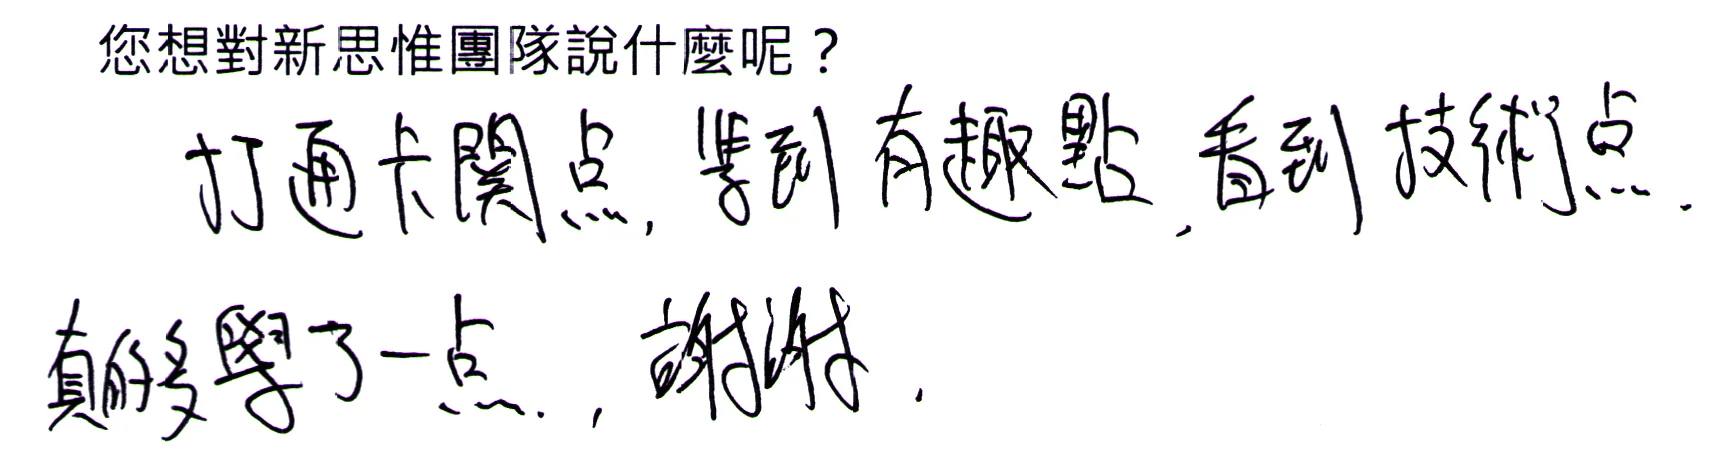 您想對新思惟團隊說什麼呢？
打通卡関点, 學到有趣點, 看到技術点.
真的多學了一点., 謝謝.